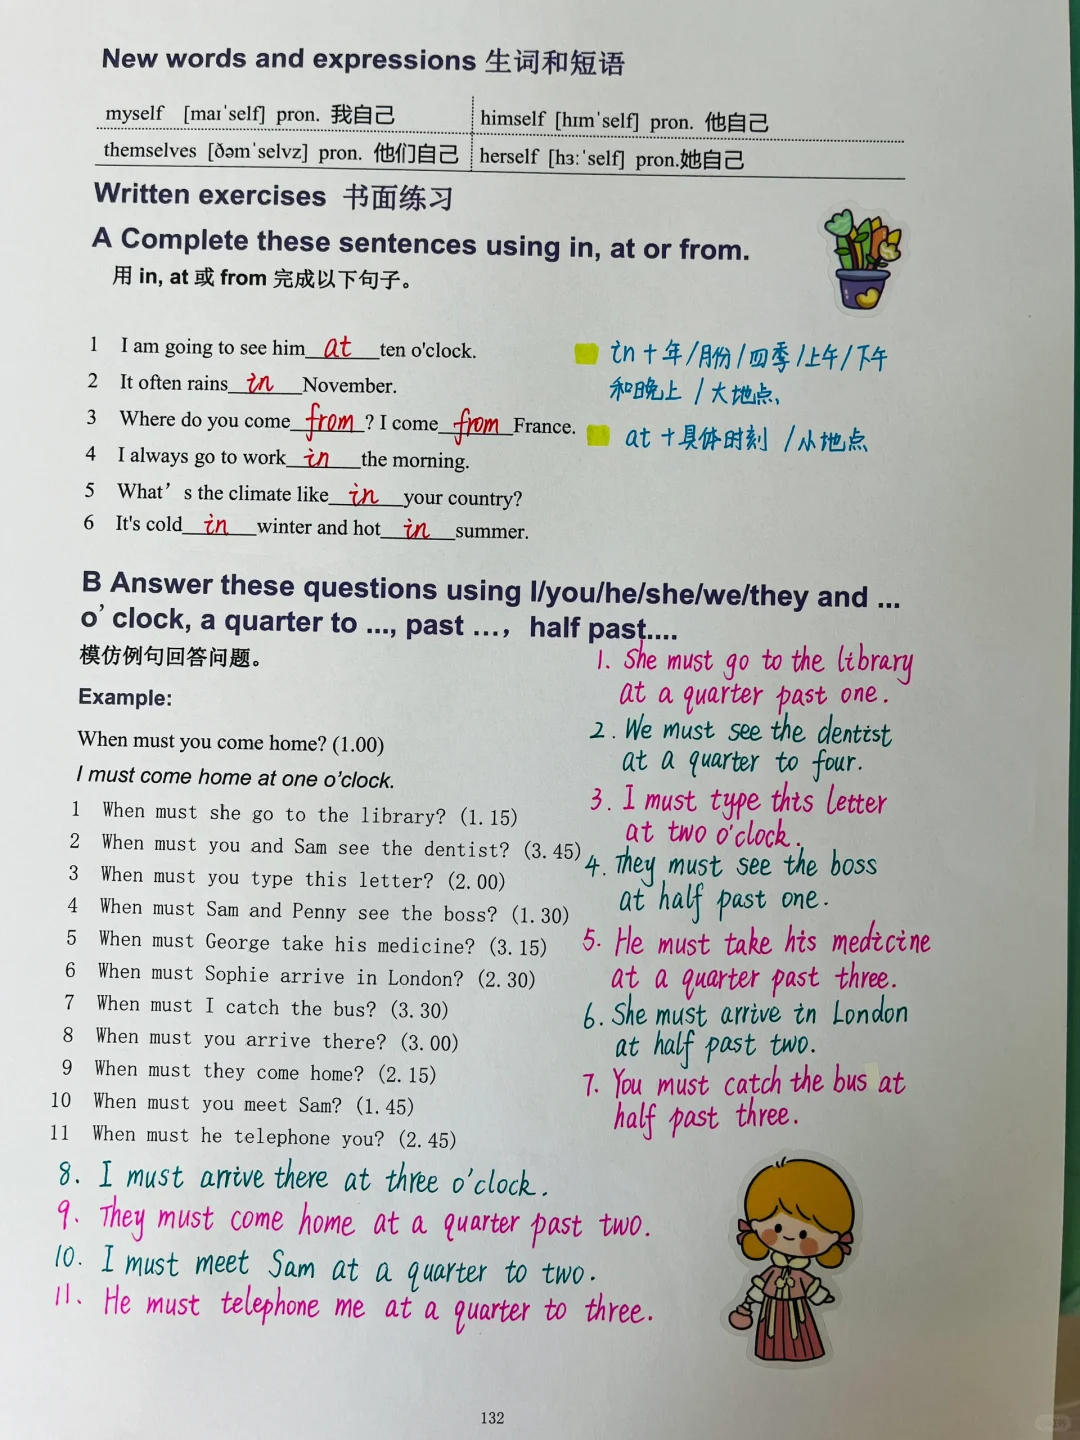 New words and expressions 生词和短语
myself [maɪˈself] pron. 我自己
himself [hɪmˈself] pron. 他自己
themselves [ðəmˈselvz] pron. 他们自己
herself [hɜːˈself] pron.她自己
Written exercises 书面练习
A Complete these sentences using in, at or from.
用 in, at 或 from 完成以下句子。
1 I am going to see him at ten o'clock.
2 It often rains in November.
3 Where do you come from? I come from France.
4 I always go to work in the morning.
5 What’s the climate like in your country?
6 It's cold in winter and hot in summer.
in + 年/月份/四季/上午/下午
和晚上 / 大地点、
at + 具体时刻 / 小地点
B Answer these questions using I/you/he/she/we/they and ...
o’clock, a quarter to ..., past ..., half past....
模仿例句回答问题。
Example:
When must you come home? (1.00)
I must come home at one o’clock.
1 When must she go to the library? (1.15)
2 When must you and Sam see the dentist? (3.45)
3 When must you type this letter? (2.00)
4 When must Sam and Penny see the boss? (1.30)
5 When must George take his medicine? (3.15)
6 When must Sophie arrive in London? (2.30)
7 When must I catch the bus? (3.30)
8 When must you arrive there? (3.00)
9 When must they come home? (2.15)
10 When must you meet Sam? (1.45)
11 When must he telephone you? (2.45)
1. She must go to the library
at a quarter past one.
2. We must see the dentist
at a quarter to four.
3. I must type this letter
at two o'clock.
4. They must see the boss
at half past one.
5. He must take his medicine
at a quarter past three.
6. She must arrive in London
at half past two.
7. You must catch the bus at
half past three.
8. I must arrive there at three o'clock.
9. They must come home at a quarter past two.
10. I must meet Sam at a quarter to two.
11. He must telephone me at a quarter to three.
132